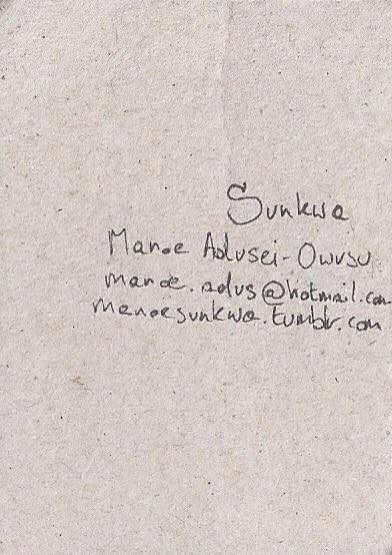 Sunkwa
Manoe Adusei-Owusu
manoe.adus@hotmail.com
manoesunkwa.tumblr.com